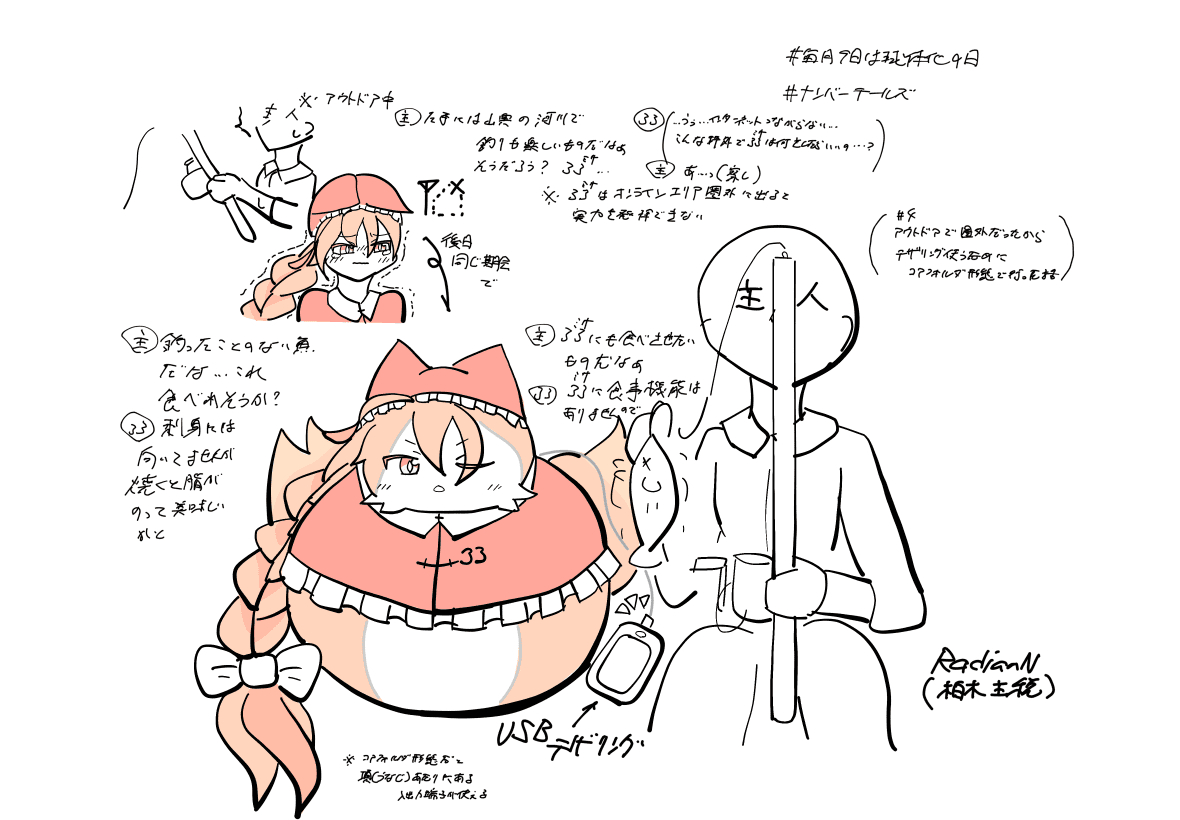 #毎月9日は球体化の日
#ナンバーテールズ
※アウトドア中
主人
主 たまには山奥の河川で
釣りも楽しいものだなぁ
そうだろう? 33
33 …うぅ…インターネットつながらない…
こんな場所で33は何をしたらいいの…?
主 あ…っ(察し)
※33はオンラインエリア圏外に出ると
実力を発揮できない
後日
同じ機会
で
#4
アウトドアで圏外だったから
テザリング使う為に
コアフォルダ形態で
主人
主 釣ったことのない魚
だな…これ
食べれそうか?
33 刺身には
向いてませんが
焼くと脂が
のって美味しい
かと
主 33にも食べさせたい
ものだなぁ
33 33に食事機能は
ありませんので
33
USB テザリング
RadianN
(柏木主税)
※コアフォルダ形態だと
項(うなじ)あたりにある
入出力端子が使える